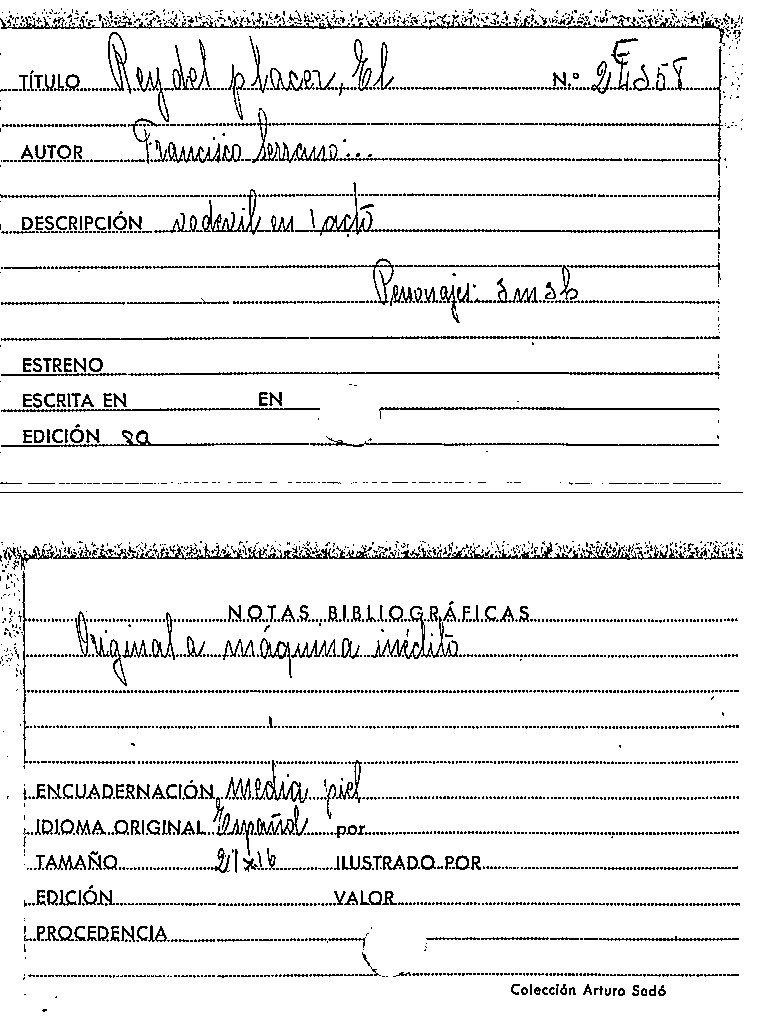 TÍTULO Rey del placer, El N.º
AUTOR Francisco Serrano...
DESCRIPCIÓN vodevil en 1 acto
Personajes:
ESTRENO
ESCRITA EN EN
EDICIÓN
NOTAS BIBLIOGRÁFICAS
Original a máquina inédito
ENCUADERNACIÓN media piel
IDIOMA ORIGINAL Español por
TAMAÑO ILUSTRADO POR
EDICIÓN VALOR
PROCEDENCIA
Colección Arturo Sedó